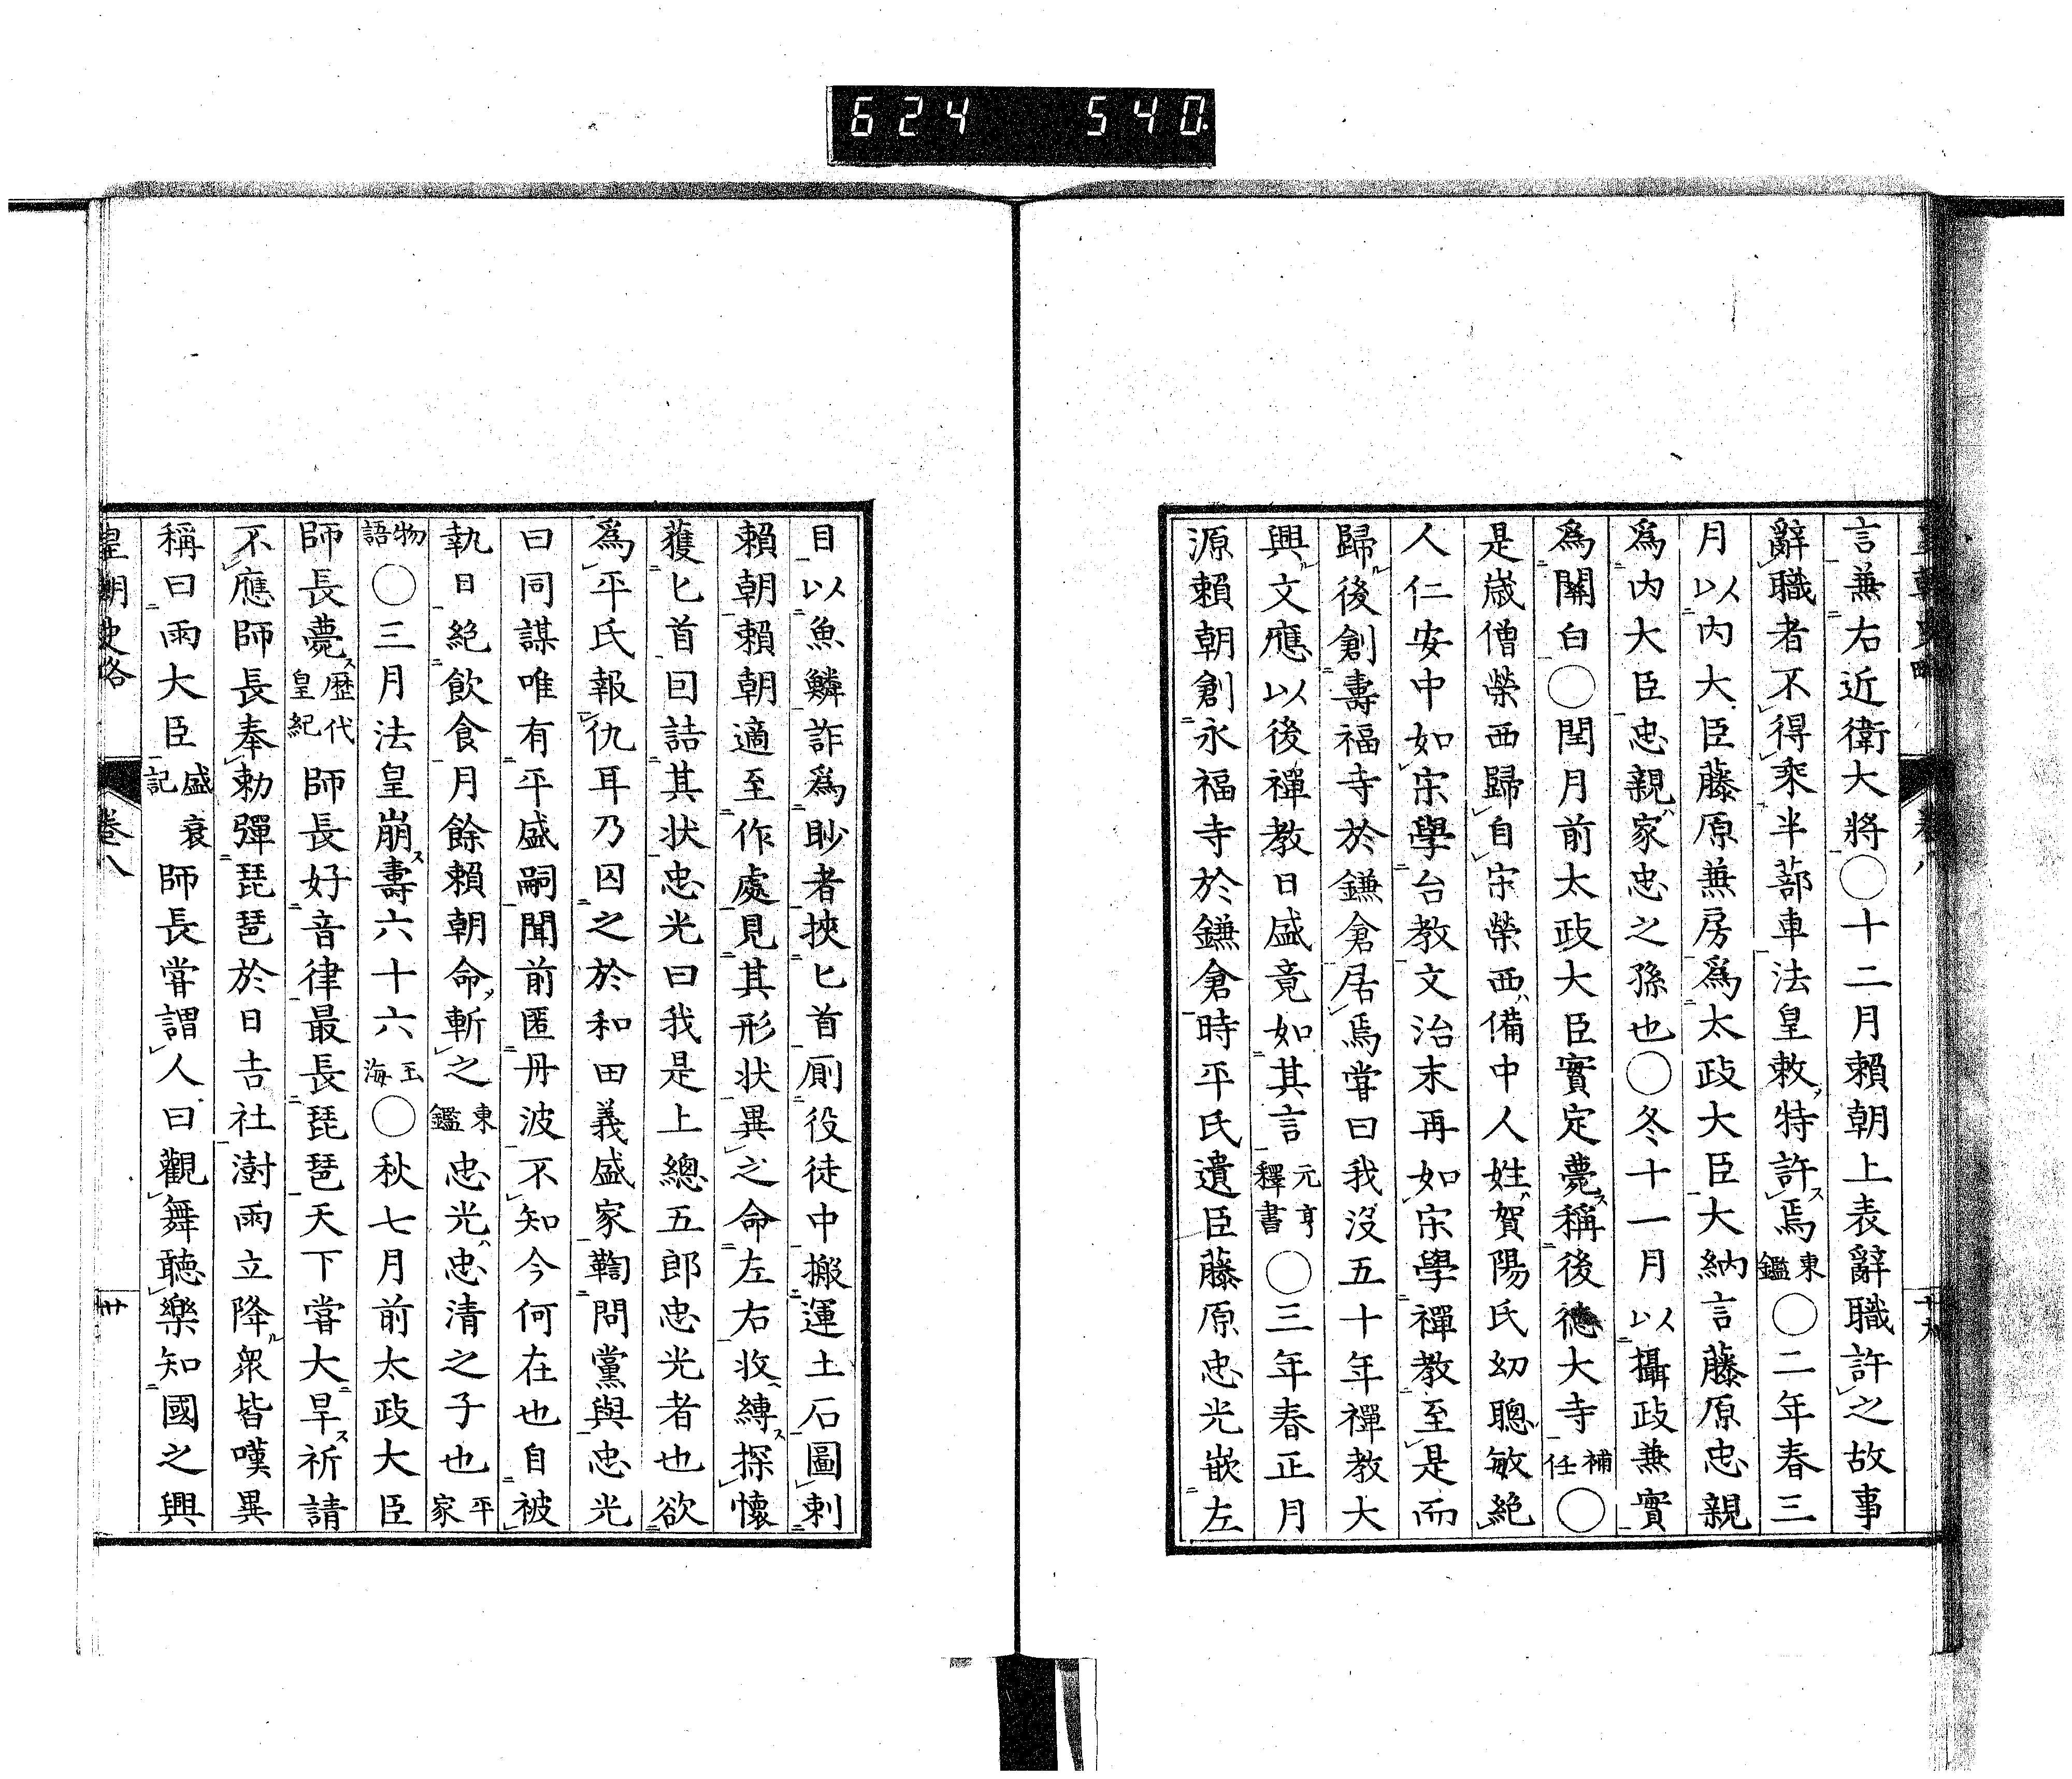 624 540.
言兼右近衛大將○十二月賴朝上表辭職許之故事
辭職者不得乘半蔀車法皇敕特許焉東鑑○二年春三
月以内大臣藤原兼房爲太政大臣大納言藤原忠親
爲内大臣忠親家忠之孫也○冬十一月以攝政兼實
爲關白○閏月前太政大臣實定薨稱後德大寺補任○
是歳僧榮西歸自宋榮西備中人姓賀陽氏幼聰敏絶
人仁安中如宋學台教文治末再如宋學禪教至是而
歸後創壽福寺於鎌倉居焉甞曰我沒五十年禪教大
興文應以後禪教日盛竟如其言元亨釋書○三年春正月
源賴朝創永福寺於鎌倉時平氏遺臣藤原忠光嵌左
目以魚鱗詐爲眇者挾匕首厠役徒中搬運土石圖刺
賴朝賴朝適至作處見其形状異之命左右收縛探懷
獲匕首因詰其状忠光曰我是上總五郎忠光者也欲
爲平氏報仇耳乃囚之於和田義盛家鞫問黨與忠光
曰同謀唯有平盛嗣聞前匿丹波不知今何在也自被
執日絶飲食月餘賴朝命斬之東鑑忠光忠清之子也平家
物語○三月法皇崩壽六十六玉海○秋七月前太政大臣
師長薨歴代皇紀師長好音律最長琵琶天下甞大旱祈請
不應師長奉勅彈琵琶於日吉社澍雨立降衆皆嘆異
稱曰雨大臣盛衰記師長甞謂人曰觀舞聽樂知國之興
皇朝史略 卷八 廿